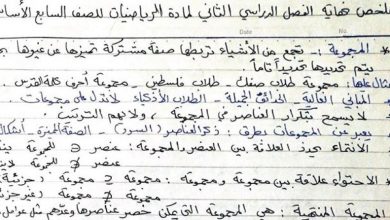 ملخص نهاية الفصل الدراسي الثاني لمادة الرياضيات للصف السابع الأساسي
* المجموعة :- تجمع من الأشياء تربطها صفة مشتركة تميزها عن غيرها
يتم تحديدها تحديداً تاماً
مثال عليها: مجموعة طلاب صفك - طلاب فلسطين - مجموعة أحرف كلمة القدس
المباني العالية - الحدائق الجميلة - الطلاب الأذكياء لا تدل على مجموعات
لا يسمح بتكرار العناصر في المجموعة ، ولا يهم الترتيب
يعبر عن المجموعات بطرق : ذكر العناصر (السرد) - الصفة المميزة - أشكال
الانتماء يحدد العلاقة بين العنصر والمجموعة : عنصر ∈ مجموعة
عنصر ∉ مجموعة
* الاحتواء علاقة بين مجموعة ومجموعة : مجموعة ⊂ مجموعة (جزئية
مجموعة ⊄ مجموعة (غير جز
المجموعة المنتهية : هي المجموعة التي يمكن حصر عناصرها وعدهم مثل عوامل